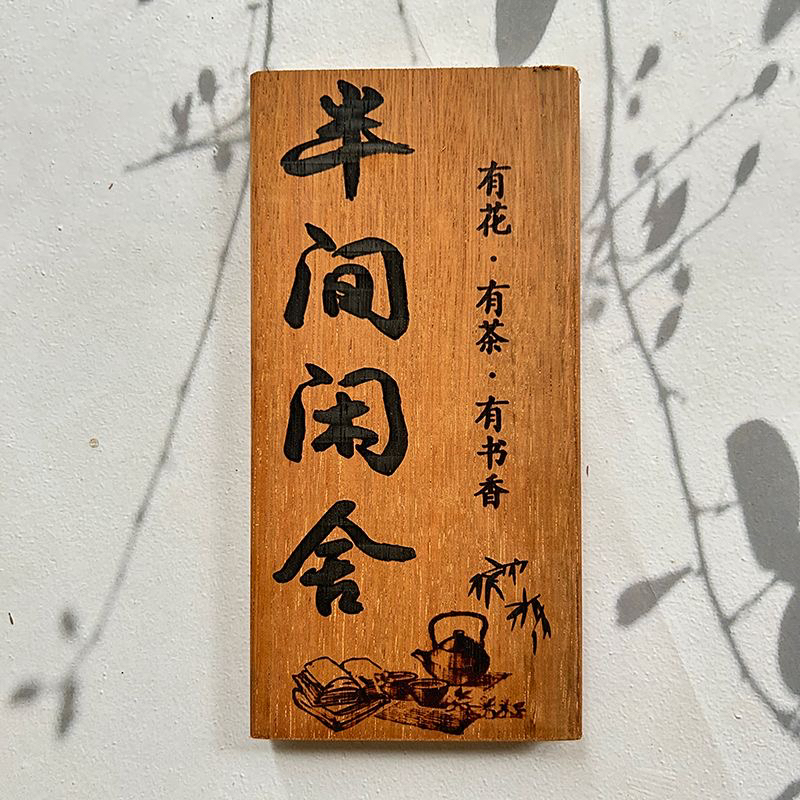 有花·有茶·有书香
半间闲舍